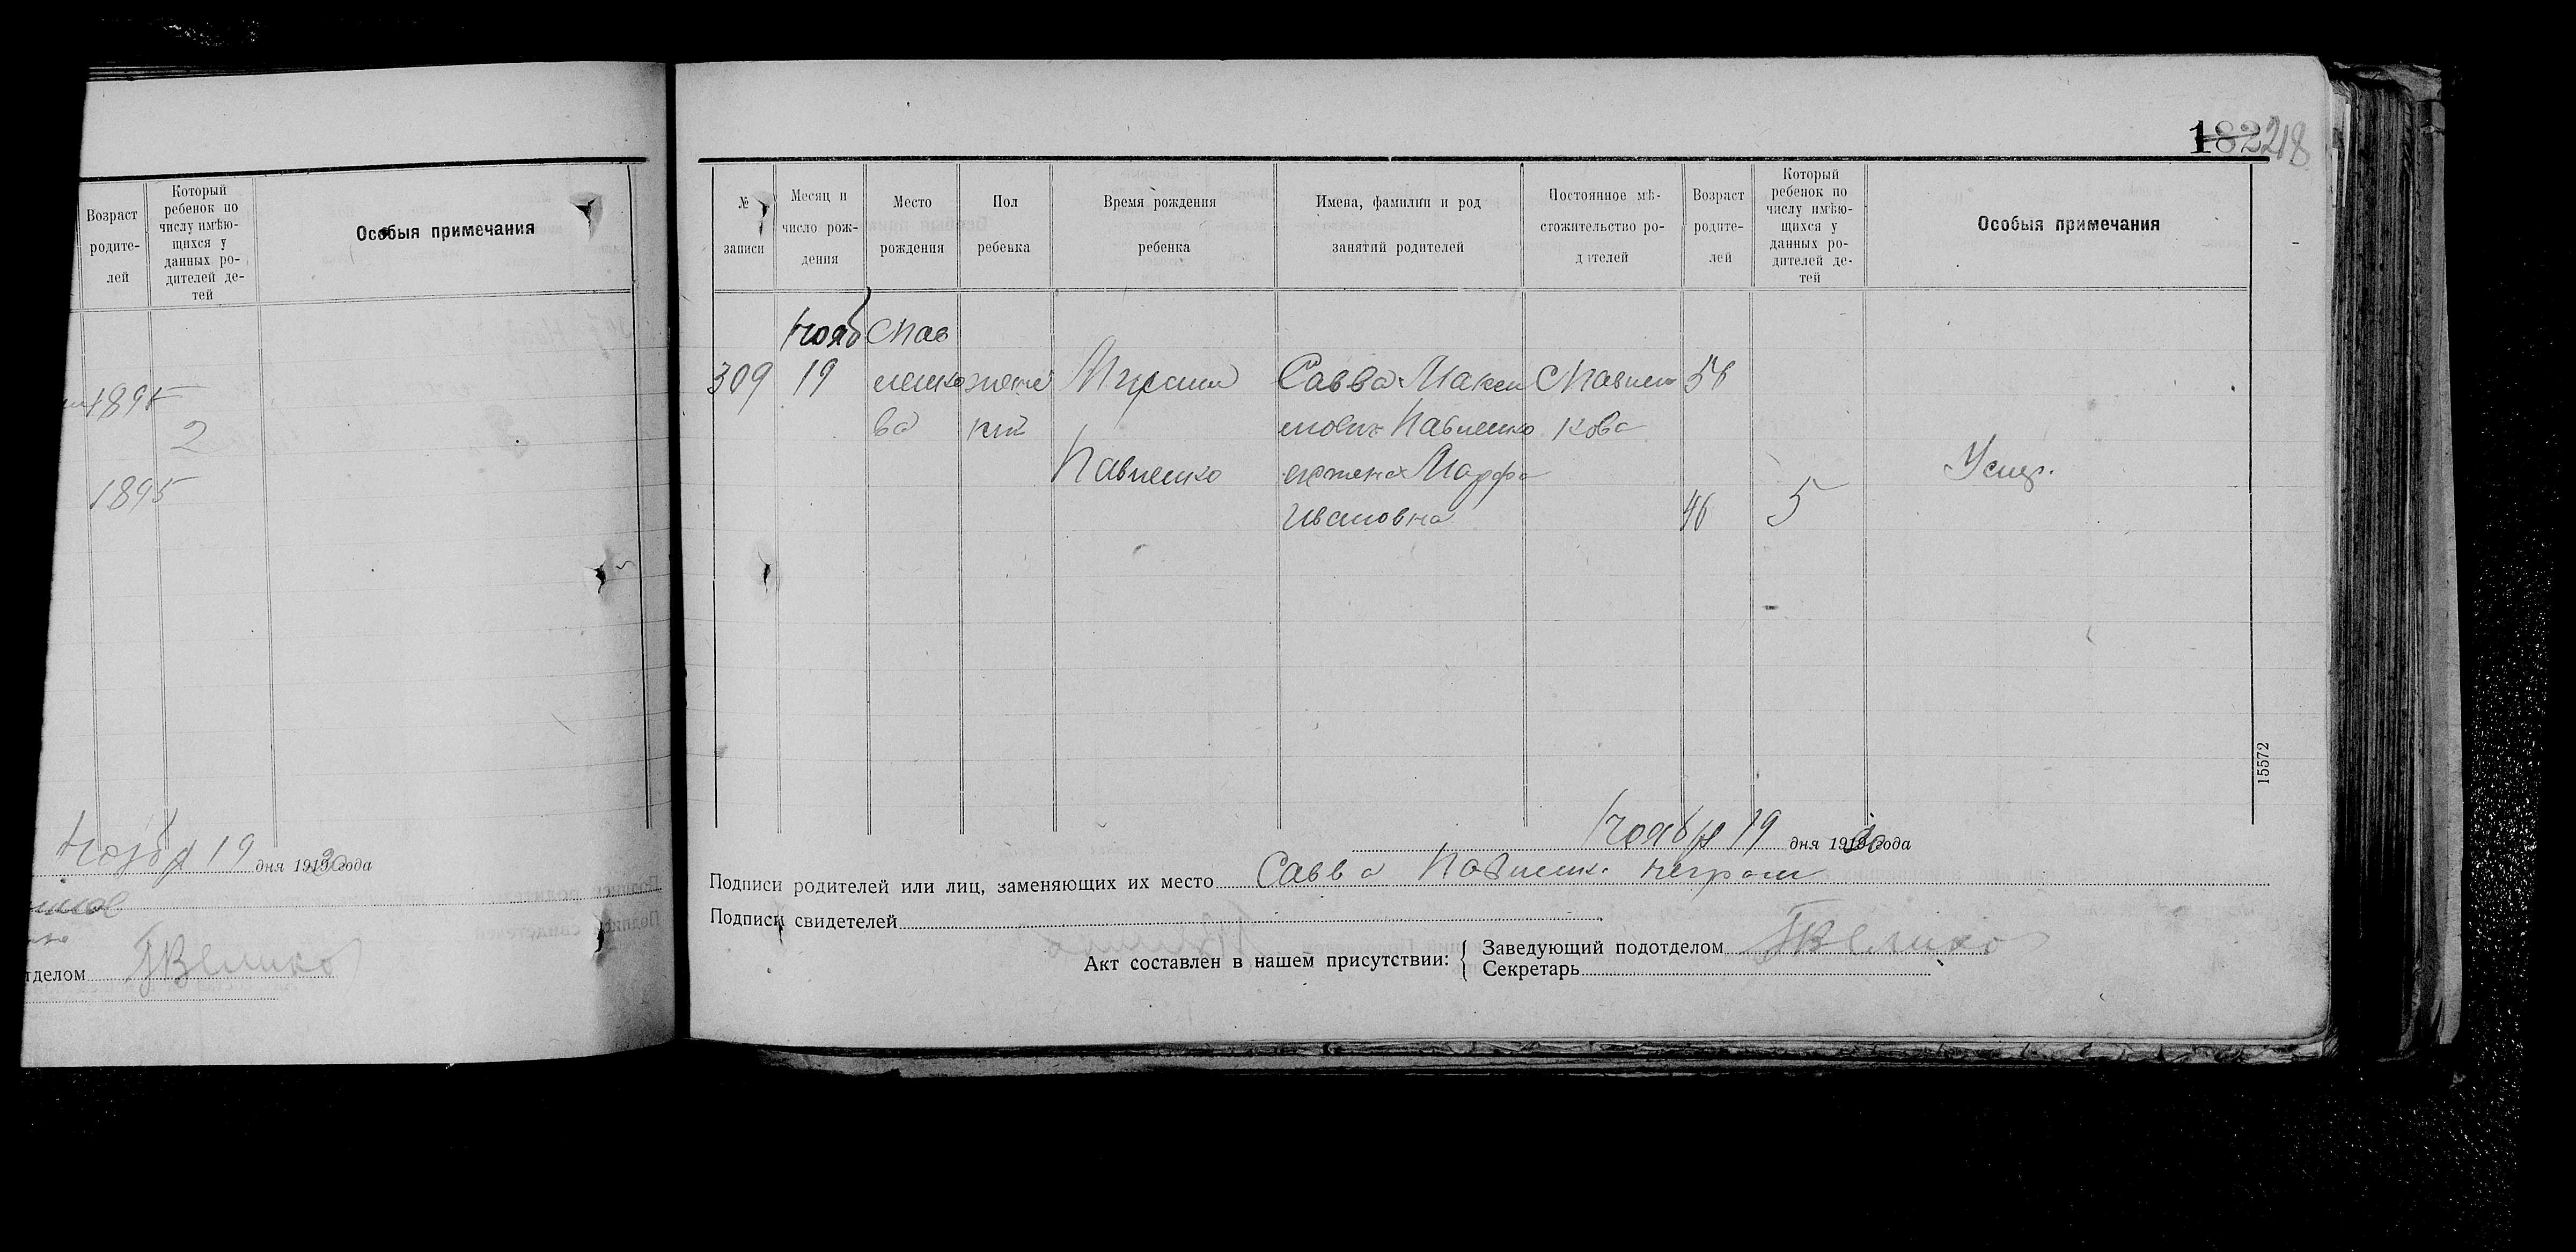 Возраст родите- лей
Который ребенок по числу имѣю- щихся у данных ро- дителей де- тей
Особыя примечания
1895
2
1895
Ноябр 19 дня 1920 года
тделом ГВелико
182 218
№ записи
Месяц и число рож- дения
Место рождения
Пол ребенка
Время рождения ребенка
Имена, фамилии и род занятий родителей
Постоянное мѣ- стожительство ро- дителей
Возраст родите- лей
Который ребенок по числу имѣю- щихся у данных ро- дителей де- тей
Особыя примечания
Нояб
309 19 женс Савва Макси 56
ва кий мович Павленко кова
Павленко жена Марфа
Ивановна 46 5
15572
Ноябр 19 дня 1920 года
Подписи родителей или лиц, заменяющих их место Савва Павленко неграм
Подписи свидетелей
Акт составлен в нашем присутствии: { Заведующий подотделом ГВелико
Секретарь